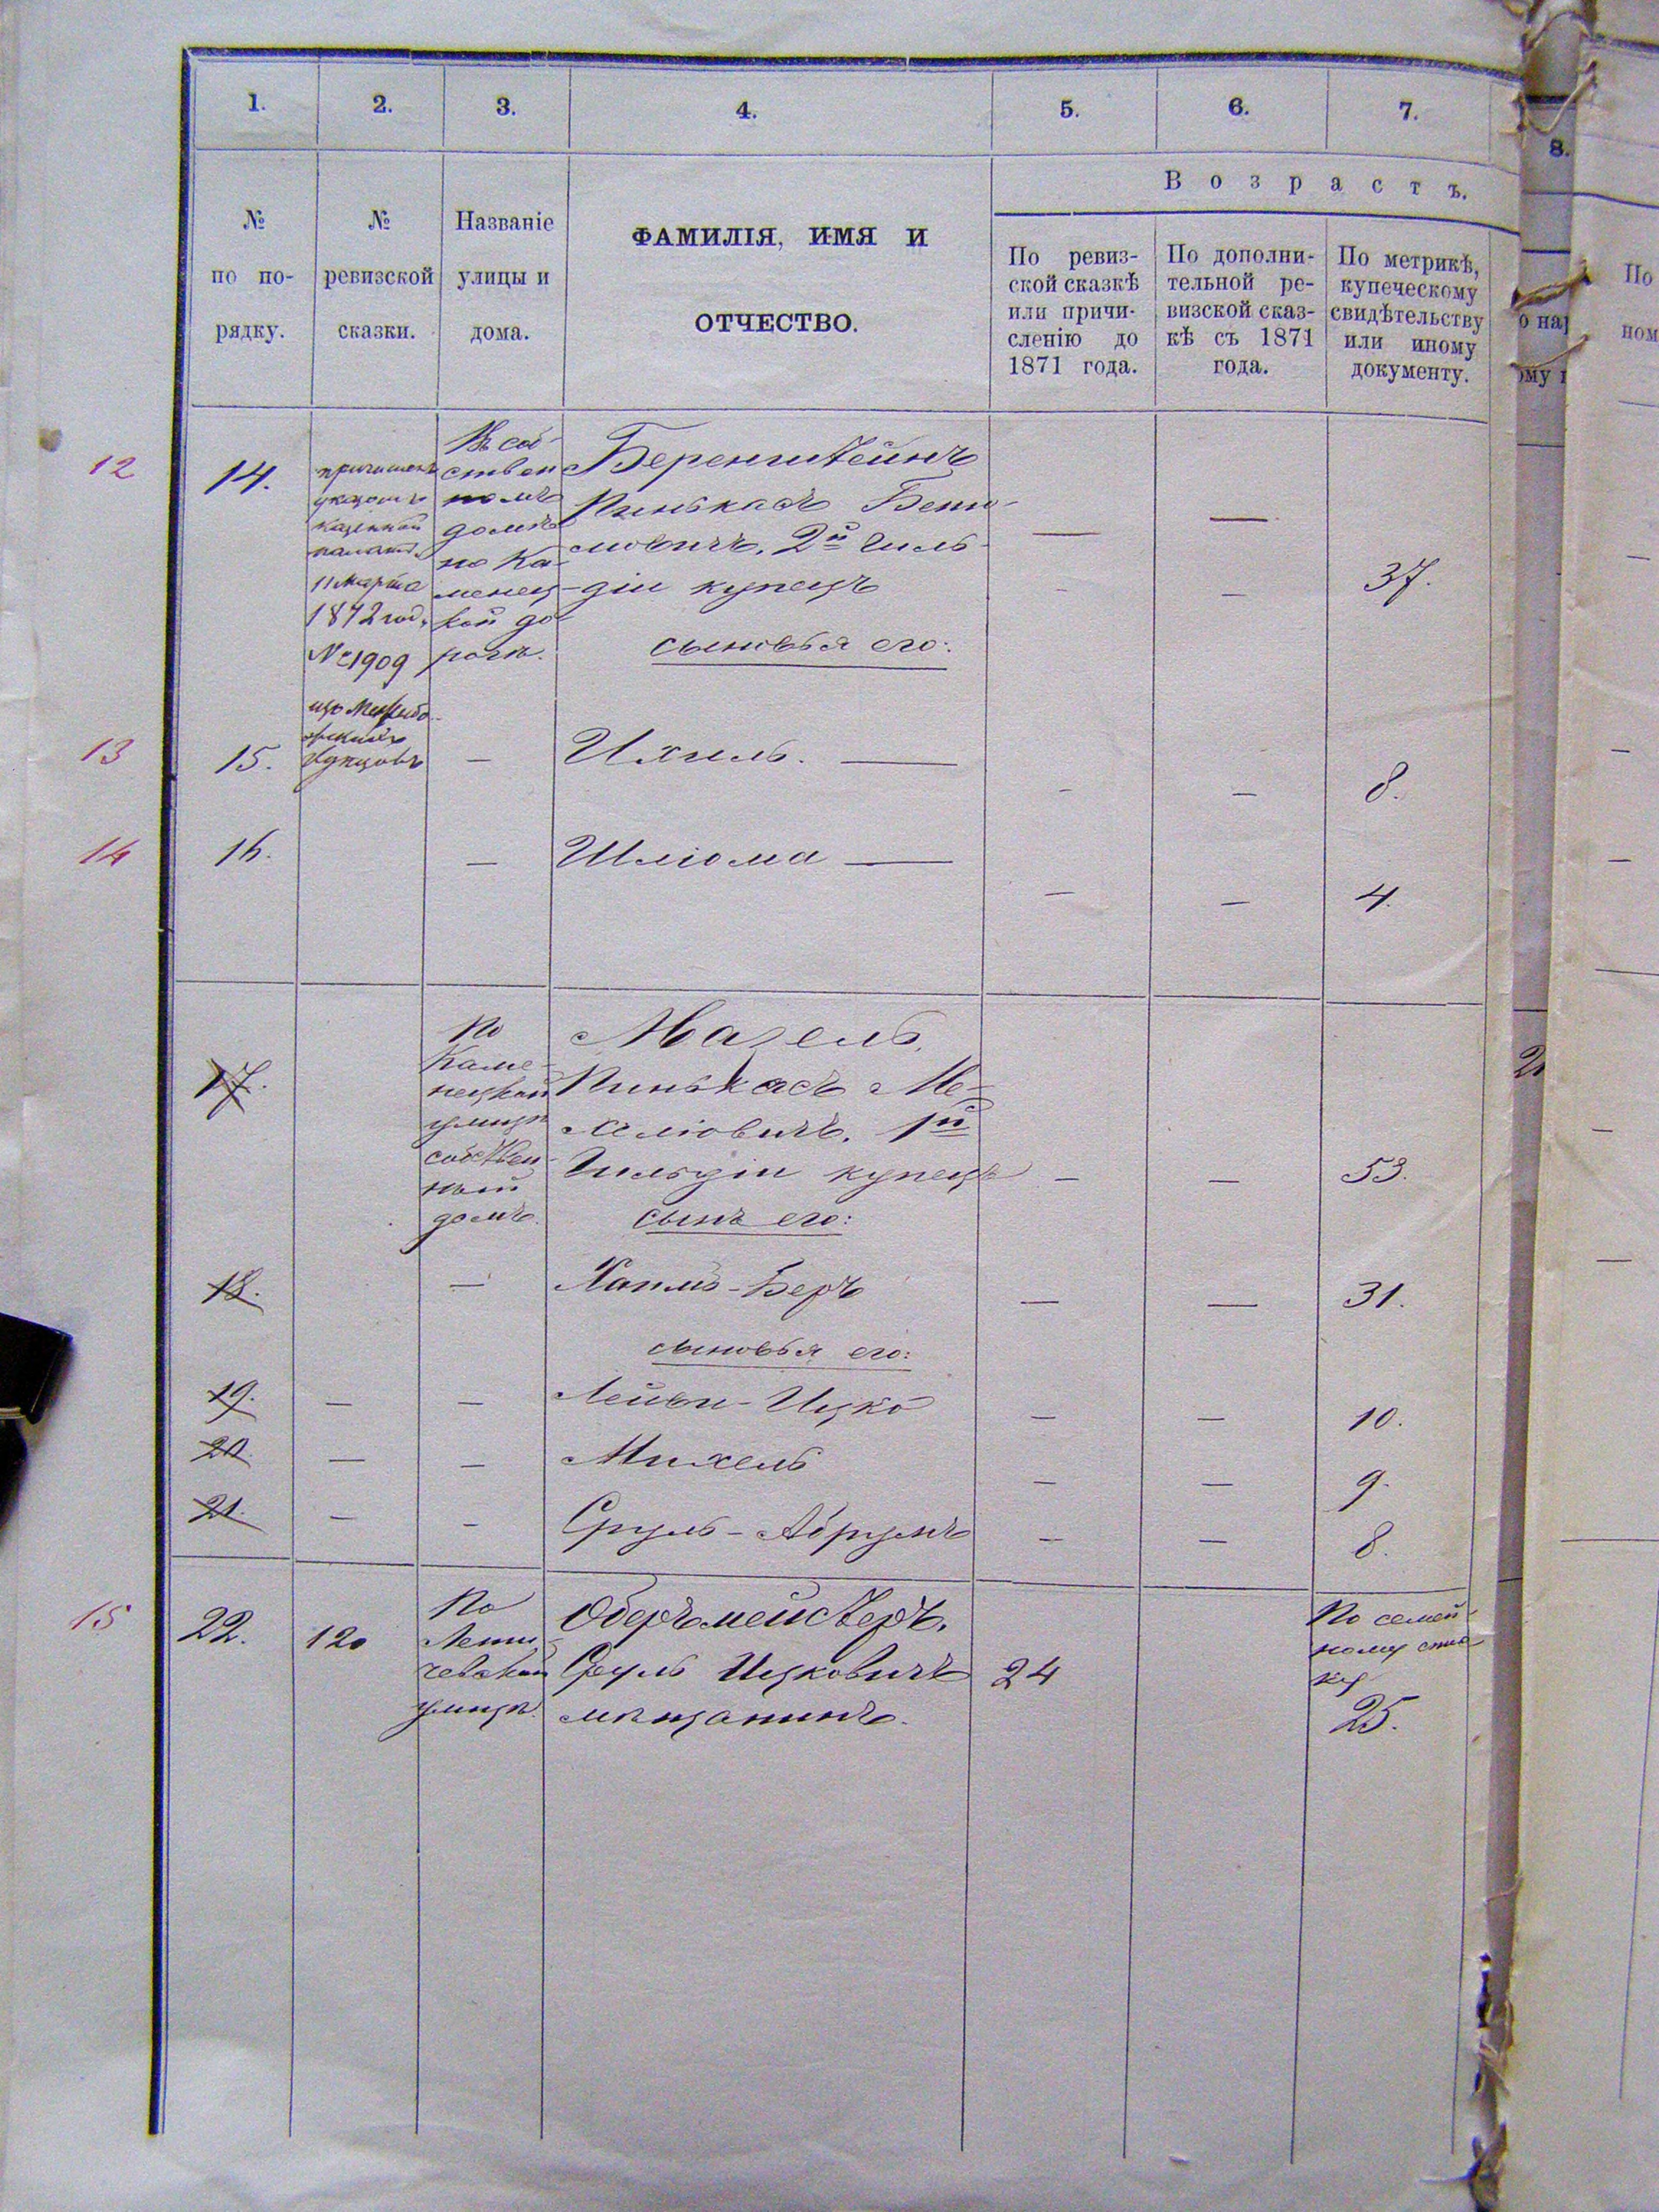 1. 2. 3. 4. 5. 6. 7.
8.
Возрастъ.
№
по по-
рядку.
№
ревизской
сказки.
Названіе
улицы и
дома.
ФАМИЛІЯ, ИМЯ И
ОТЧЕСТВО.
По ревиз-
ской сказкѣ
или причи-
сленію до
1871 года.
По дополни-
тельной ре-
визской сказ-
кѣ съ 1871
года.
По метрикѣ,
купеческому
свидѣтельству
или иному
документу.
12
14.
причисленъ
указомъ
казенной
палаты
11 Марта
1872 год.
№ 1909
купцовъ
Въ соб-
ствен
номъ
домѣ
по Ка-
менец-
кой до
рогѣ.
Беренштейнъ
Пинькасъ
2й Гиль-
діи купецъ
— — 37.
сыновья его:
13
15. — Ихиль. — — — 8.
14
16. — Шліома — — — 4.
17.
По
Каме-
нецкой
улицѣ
собствен-
ный
домъ.
Мазель,
Пинькасъ Ме-
хеліовичъ, 1й
Гильдіи купецъ — — 53.
сынъ его:
18. — Хаимъ-Беръ — — 31.
сыновья его:
19. — — Лейви-Ицко — — 10.
20. — — Михель — — 9.
21. — — Сруль-Абрумъ — — 8.
15
22. 120
По
Лети-
чевской
улицѣ.
Оберъмейстеръ,
Сруль Ицковичъ 24
мѣщанинъ.
По семей-
ному спис
ку
25.